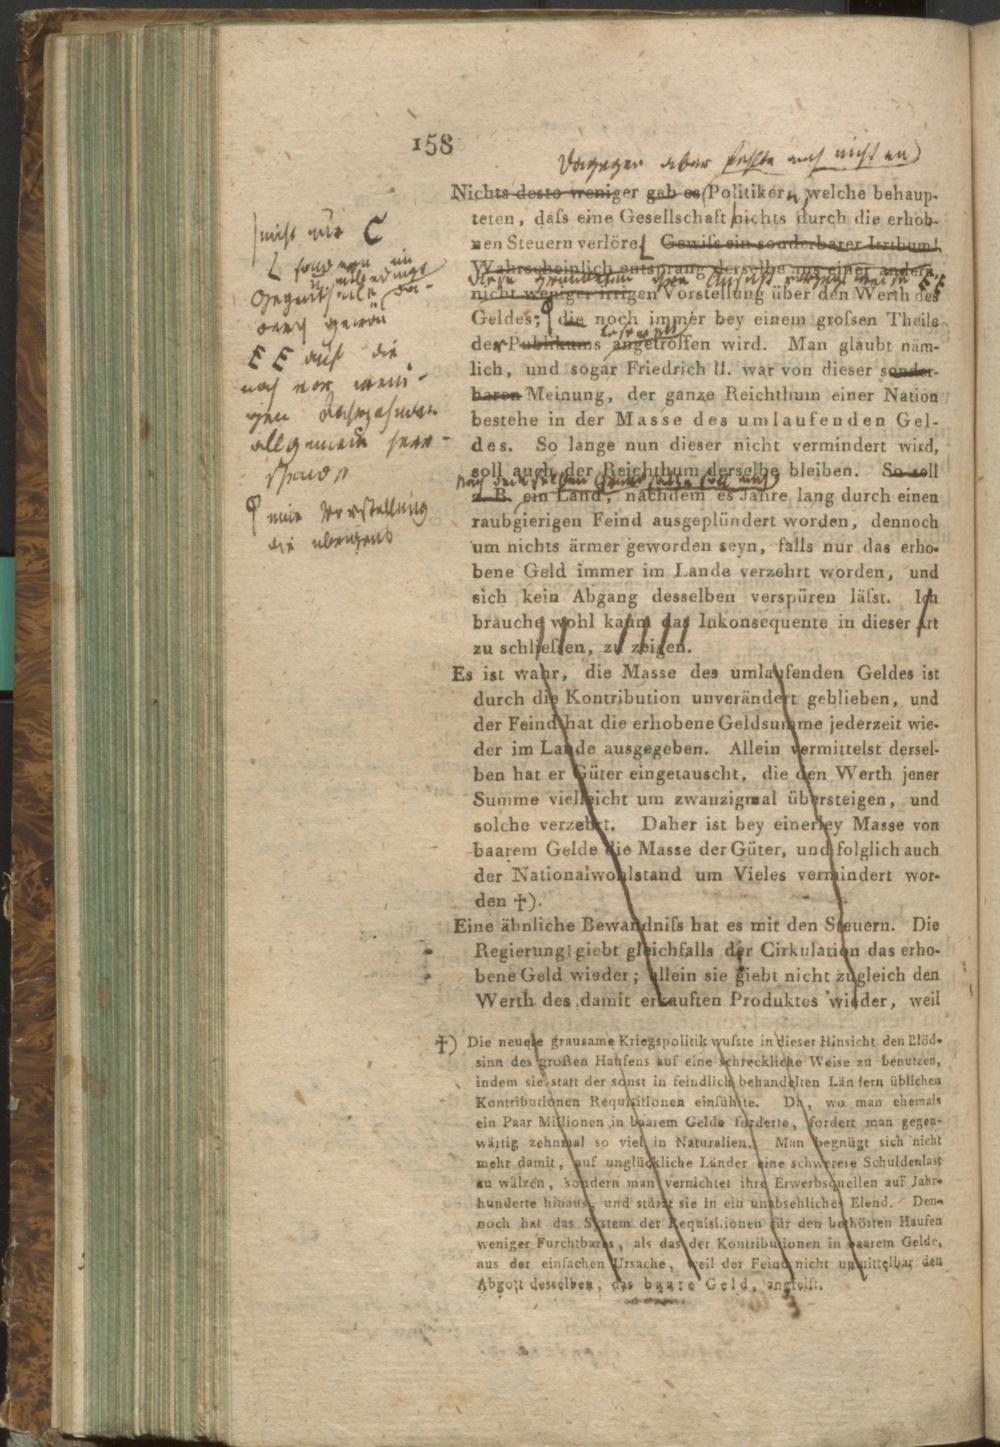 158
Dagegen aber fehlte auch nicht an
Nichts desto weniger gab es Politikern, welche behaup-
teten, daſs eine Gesellschaft nichts durch die erhob-
nen Steuern verlöre. Gewiſs ein sonderbarer Irrthum!
Wahrscheinlich entsprang derselbe aus einer andern,
diese gründeten ihre Ansicht
nicht weniger irrigen Vorstellung über den Werth des
Geldes; die noch immer bey einem groſsen Theile
des Publikums angetroffen wird. Man glaubt näm-
lich, und sogar Friedrich II. war von dieser sonder-
baren Meinung, der ganze Reichthum einer Nation
bestehe in der Masse des umlaufenden Gel-
des. So lange nun dieser nicht vermindert wird,
soll auch der Reichthum derselbe bleiben. So soll
z. B. ein Land, nachdem es Jahre lang durch einen
raubgierigen Feind ausgeplündert worden, dennoch
um nichts ärmer geworden seyn, falls nur das erho-
bene Geld immer im Lande verzehrt worden, und
sich kein Abgang desselben verspüren läſst. Ich
brauche wohl kaum das Inkonsequente in dieser Art
zu schlieſsen, zu zeigen.
nicht nur
sondern im
Gegentheile
EE auf die
noch vor weni-
gen
allgemein herr-
eine Vorstellung
die übrigens
Es ist wahr, die Masse des umlaufenden Geldes ist
durch die Kontribution unverändert geblieben, und
der Feind hat die erhobene Geldsumme jederzeit wie-
der im Lande ausgegeben. Allein vermittelst dersel-
ben hat er Güter eingetauscht, die den Werth jener
Summe vielleicht um zwanzigmal übersteigen, und
solche verzehrt. Daher ist bey einerley Masse von
baarem Gelde die Masse der Güter, und folglich auch
der Nationalwohlstand um Vieles vermindert wor-
den †).
Eine ähnliche Bewandniſs hat es mit den Steuern. Die
Regierung giebt gleichfalls der Cirkulation das erho-
bene Geld wieder; allein sie giebt nicht zugleich den
Werth des damit erkauften Produktes wieder, weil
†) Die neuere grausame Kriegspolitik wuſste in dieser Hinsicht den Blöd-
sinn des groſsen Haufens auf eine schreckliche Weise zu benutzen,
indem sie statt der sonst in feindlich behandelten Ländern üblichen
Kontributionen Requisitionen einführte. Da, wo man ehemals
ein Paar Millionen in baarem Gelde forderte, fordert man gegen-
wärtig zehnmal so viel in Naturalien. Man begnügt sich nicht
mehr damit, auf unglückliche Länder eine schwerere Schuldenlast
zu wälzen, sondern man vernichtet ihre Erwerbsquellen auf Jahr-
hunderte hinaus, und stürzt sie in ein unabsehliches Elend. Den-
noch hat das System der Requisitionen für den bethörten Haufen
weniger Furchtbares, als das der Kontributionen in baarem Gelde,
aus der einfachen Ursache, weil der Feind nicht unmittelbar den
Abgott desselben, das baare Geld, angreift.